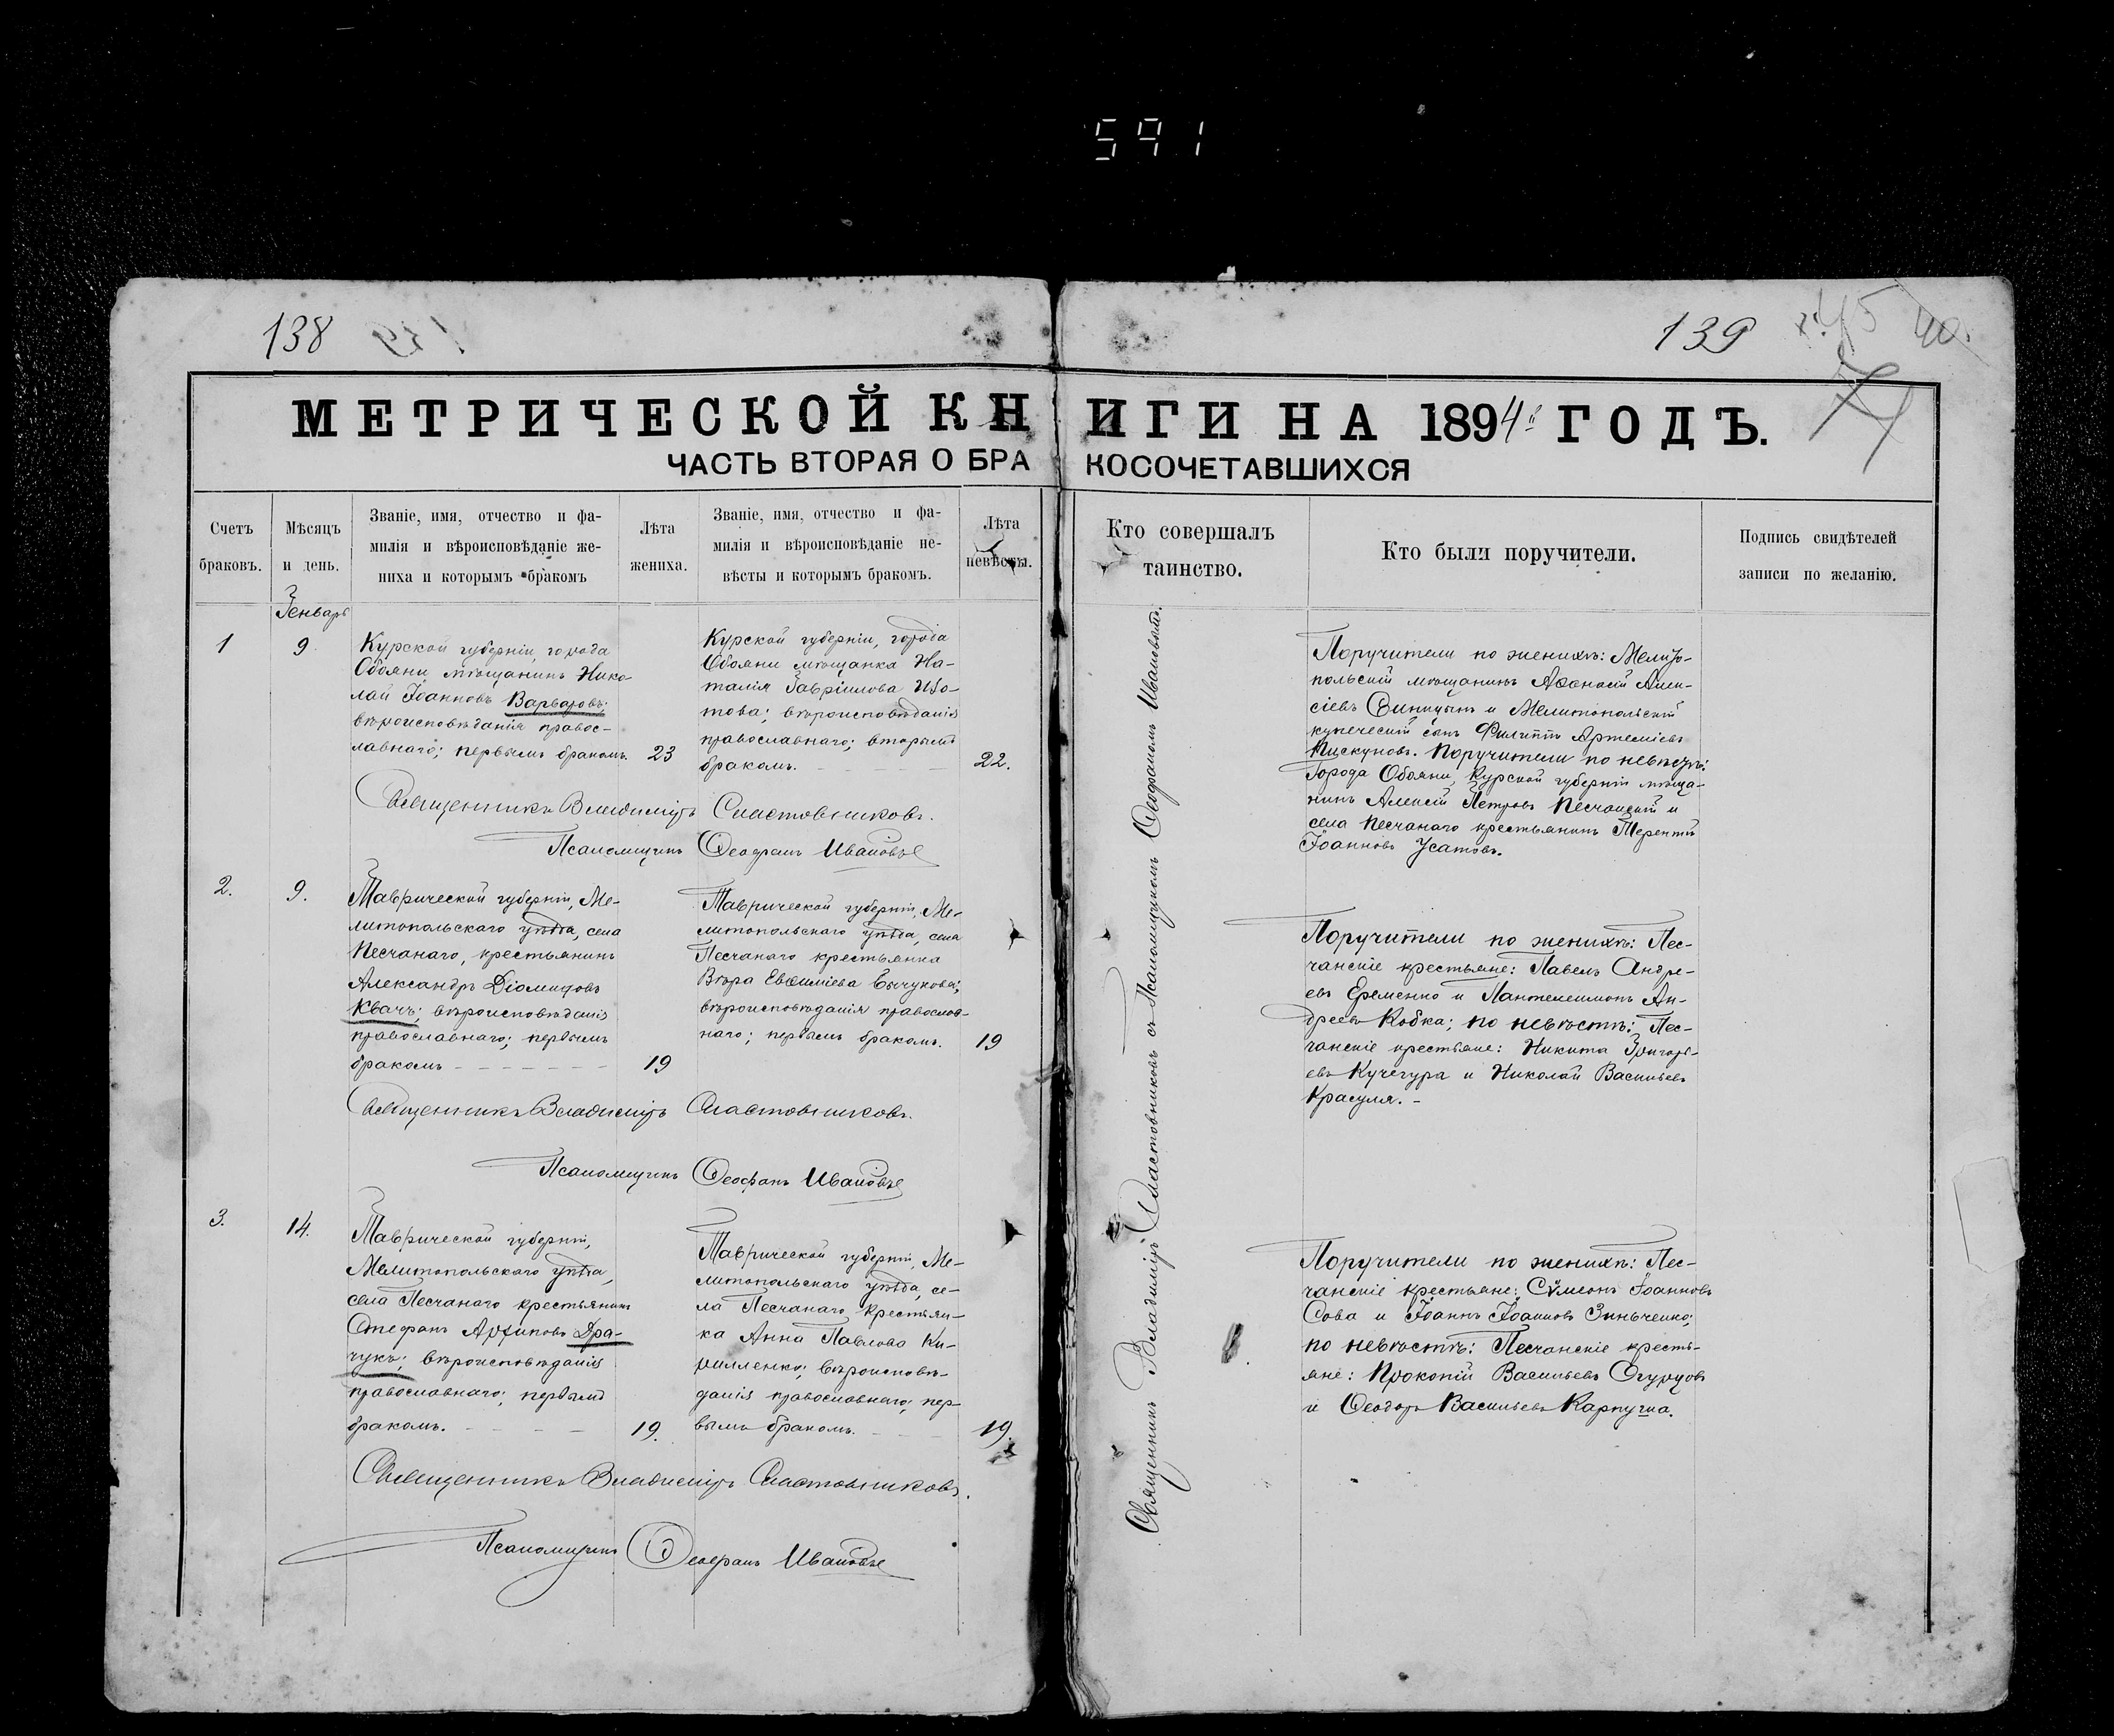 591
138
139
40.
МЕТРИЧЕСКОЙ КНИГИ НА 1894й ГОДЪ.
ЧАСТЬ ВТОРАЯ О БРАКОСОЧЕТАВШИХСЯ
Счетъ
браковъ.
Мѣсяцъ
и день.
Званіе, имя, отчество и фа-
милія и вѣроисповѣданіе же-
ниха и которымъ бракомъ
Лѣта
жениха.
Званіе, имя, отчество и фа-
милія и вѣроисповѣданіе не-
вѣсты и которымъ бракомъ.
Лѣта
невѣсты.
Кто совершалъ
таинство.
Кто были поручители.
Подпись свидѣтелей
записи по желанію.
Генварь
1
9
Курской губерніи, города
Обояни мѣщанинъ Нико-
лай Іоанновъ Варваровъ;
вѣроисповѣданія правос-
лавнаго; первымъ бракомъ.
23
Курской губерніи, города
Обояни мѣщанка На-
талія Гавріилова Изо-
това; вѣроисповѣданія
православнаго; вторымъ
бракомъ.
22.
Поручители по женихѣ: Мелито-
польскій мѣщанинъ Аѳанасій Алек-
сіевъ Синицынъ и Мелитопольскій
купеческій сынъ Филиппъ Артеміевъ
Пискуновъ. Поручители по невѣстѣ:
Города Обояни, Курской губерніи мѣща-
нинъ Алексій Петровъ Песчанскій и
села Песчанаго крестьянинъ Терентій
Іоанновъ Усатовъ.
Священникъ Владиміръ Сластовниковъ.
Псаломщикъ Ѳеофанъ Ивановъ
2.
9.
Таврической губерніи, Ме-
литопольскаго уѣзда, села
Песчанаго, крестьянинъ
Александръ Діомидовъ
Квачъ; вѣроисповѣданія
православнаго; первымъ
бракомъ
19
Таврической губерніи, Ме-
литопольскаго уѣзда, села
Песчанаго крестьянка
Вѣра Евѳиміева Бычукова;
вѣроисповѣданія православ-
наго; первымъ бракомъ.
19
Поручители по женихѣ: Пес-
чанскіе крестьяне: Павелъ Андре-
евъ Еременко и Пантелеимонъ Ан-
дреевъ Кобка; по невѣстѣ: Пес-
чанскіе крестьяне: Никита Григорь-
евъ Кучегура и Николай Васильевъ
Красуля.
Священникъ Владиміръ Сластовниковъ.
Псаломщикъ Ѳеофанъ Ивановъ
3.
14.
Таврической губерніи,
Мелитопольскаго уѣзда,
села Песчанаго крестьянинъ
Стефанъ Архиповъ Дра-
чукъ; вѣроисповѣданія
православнаго; первымъ
бракомъ.
19.
Таврической губерніи, Ме-
литопольскаго уѣзда, се-
ла Песчанаго крестьян-
ка Анна Павлова Ки-
рилленко; вѣроисповѣ-
данія православнаго; пер-
вымъ бракомъ.
19.
Поручители по женихѣ: Пес-
чанскіе крестьяне: Сѵмеонъ Іоанновъ
Сова и Іоаннъ Іоанновъ Зинченко;
по невѣстѣ: Песчанскіе кресть-
яне: Прокопій Васильевъ Огурцовъ
и Ѳеодоръ Васильевъ Карпуша.
Священникъ Владиміръ Сластовниковъ.
Псаломщикъ Ѳеофанъ Ивановъ
Священникъ Владиміръ Сластовниковъ съ Псаломщикомъ Ѳеофаномъ Ивановымъ.